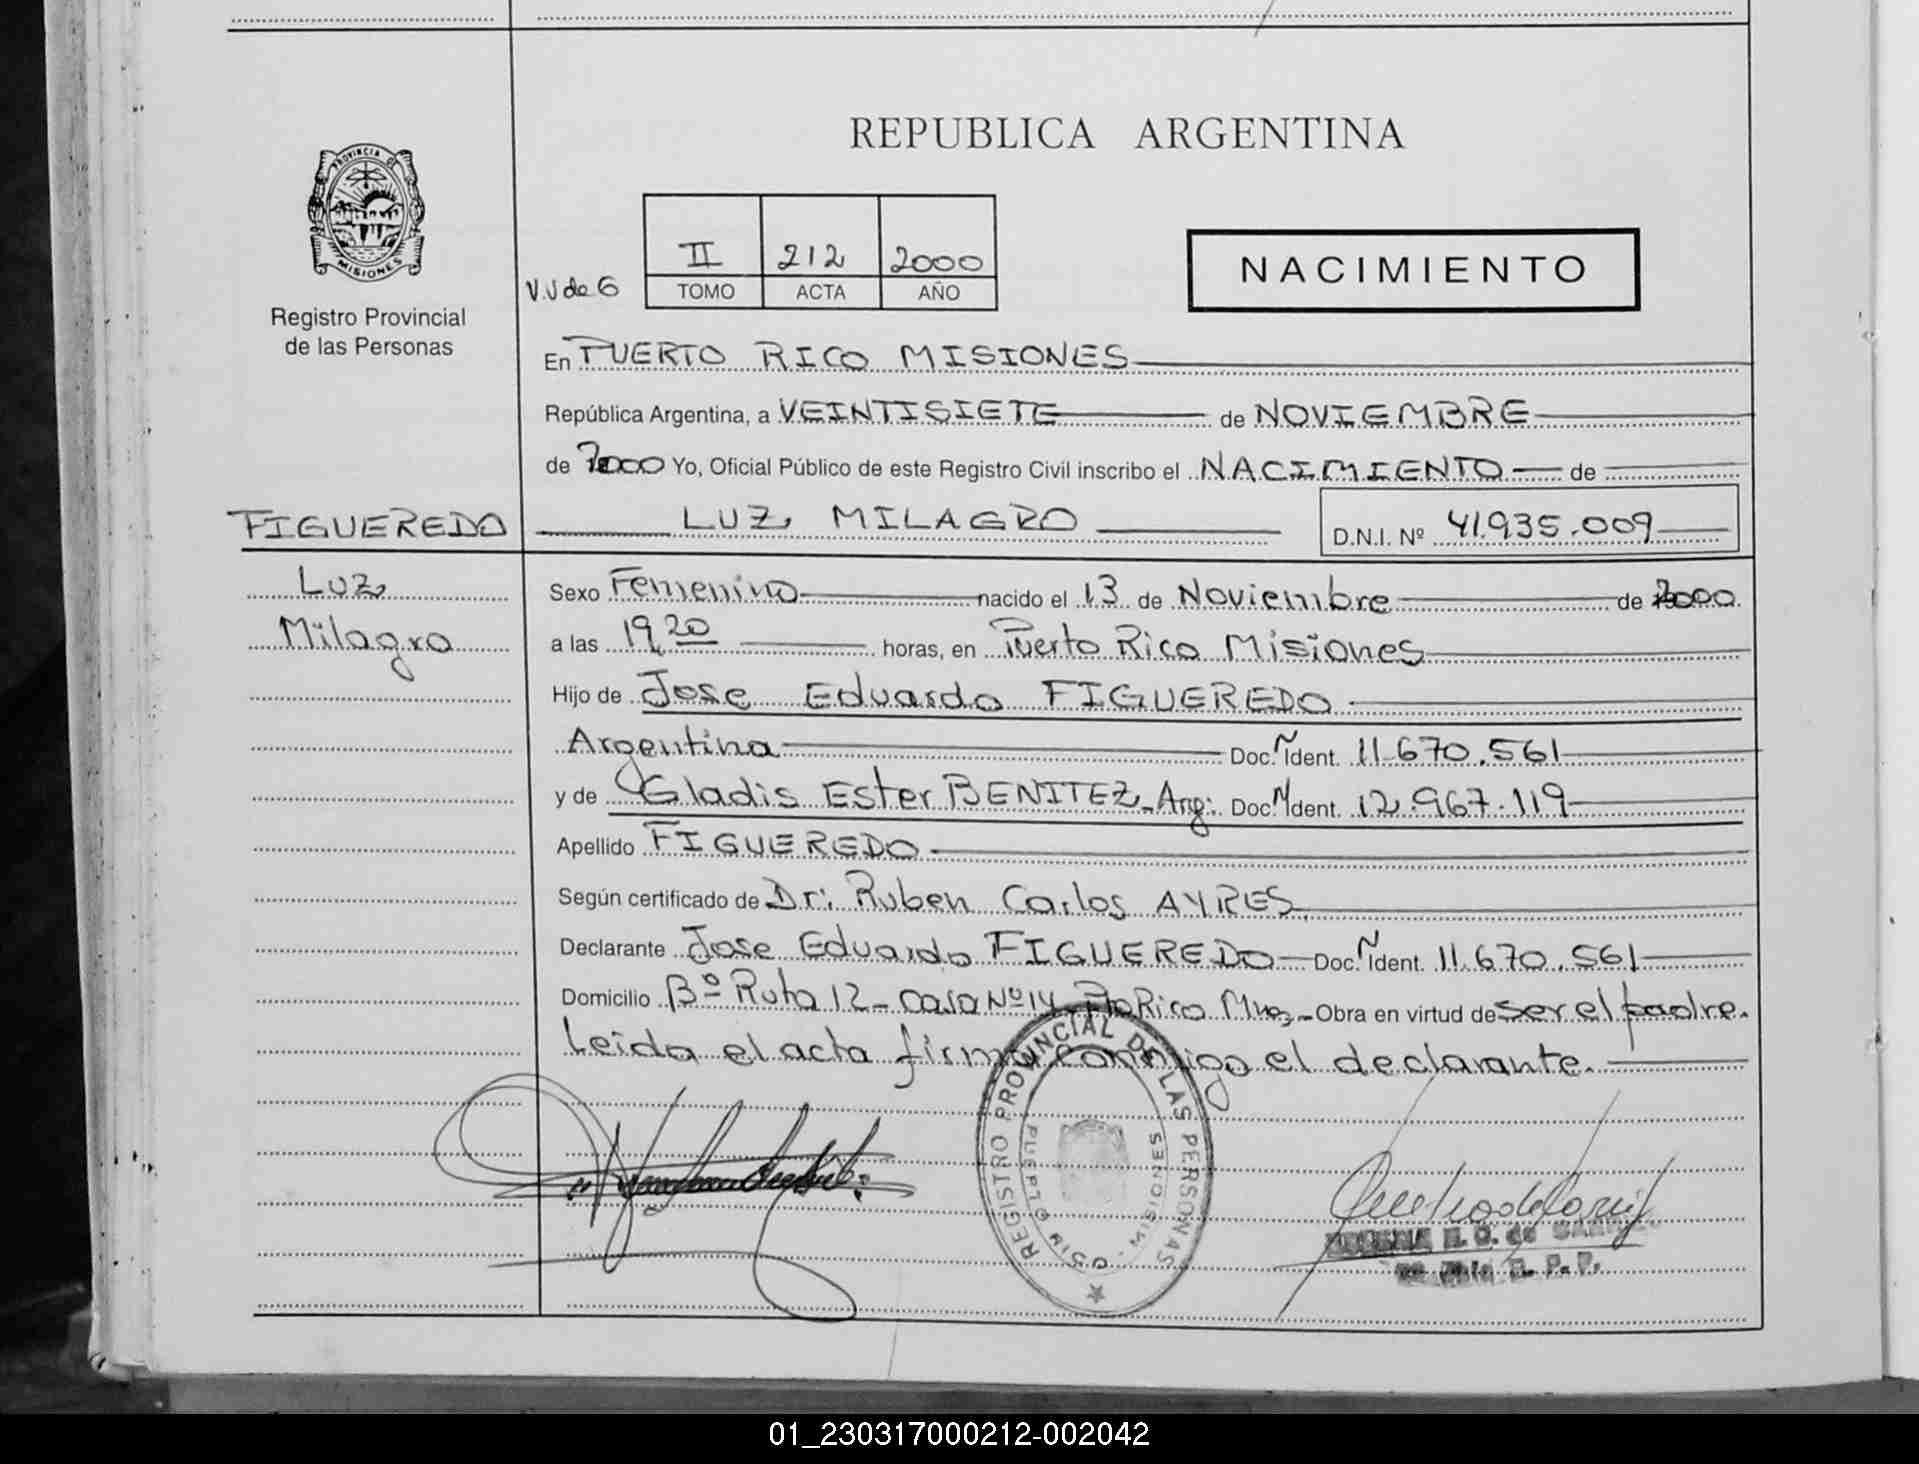 REPUBLICA ARGENTINA
PROVINCIA DE MISIONES
Registro Provincial
de las Personas
V.V de G
II 212 2000
TOMO ACTA AÑO
NACIMIENTO
En PUERTO RICO MISIONES
República Argentina, a VEINTISIETE de NOVIEMBRE
de 2000 Yo, Oficial Público de este Registro Civil inscribo el NACIMIENTO de
FIGUEREDO LUZ, MILAGRO D.N.I. Nº 41.935.009
Luz,
Milagro
Sexo Femenino nacido el 13 de Noviembre de 2000
a las 19,20 horas, en Puerto Rico Misiones
Hijo de Jose Eduardo FIGUEREDO
Argentina Doc. Ident. 11.670.561
y de Gladis Ester BENITEZ - Arg: Doc. Ident. 12.967.119
Apellido FIGUEREDO
Según certificado de Dr: Ruben Carlos AYRES
Declarante Jose Eduardo FIGUEREDO Doc. Ident. 11.670.561
Domicilio Bº Ruta 12 - casa Nº 14 Pto Rico Mnes - Obra en virtud de ser el padre.
Leida el acta firma conmigo el declarante.
REGISTRO PROVINCIAL DE LAS PERSONAS
PUERTO RICO - MISIONES
01_230317000212-002042